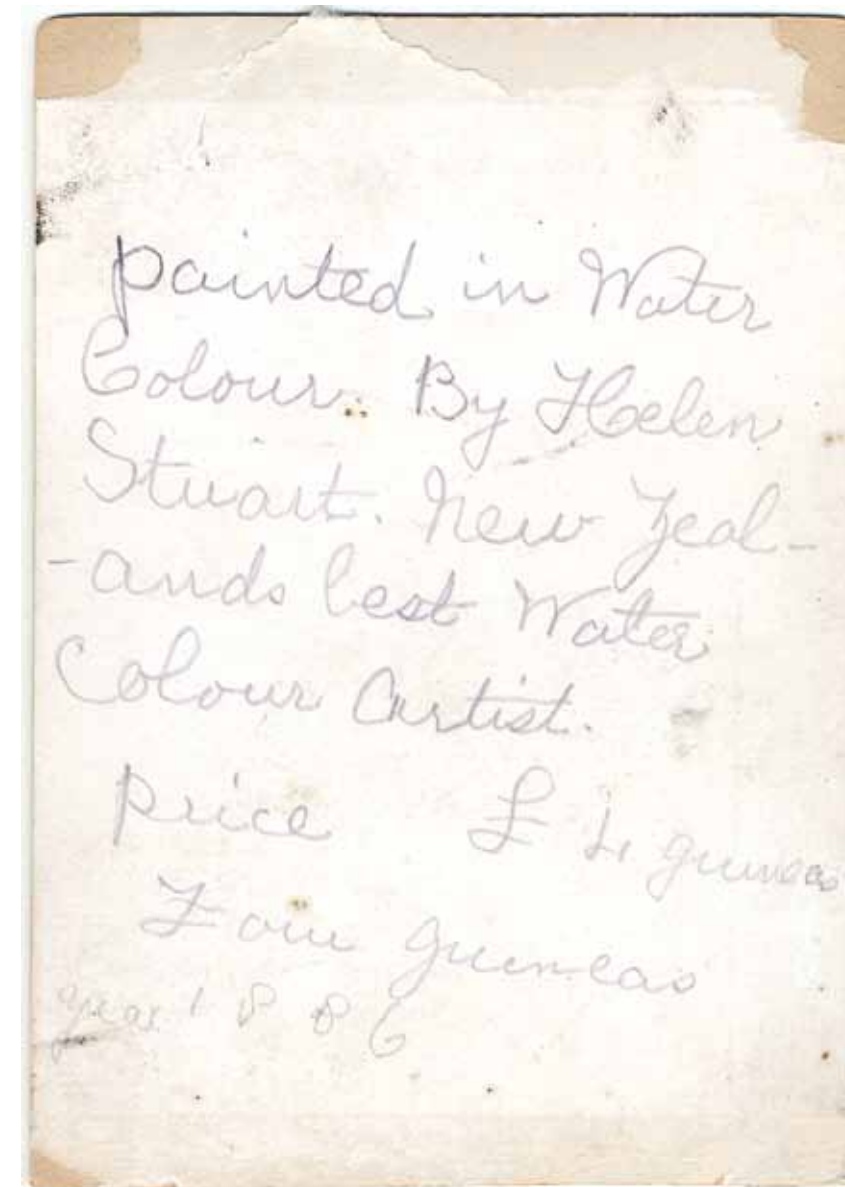 painted in Water
Colour. By Helen
Stuart. New Zeal-
-ands best Water
Colour Artist.
price £ 4 guineas
Four guineas
year 1886